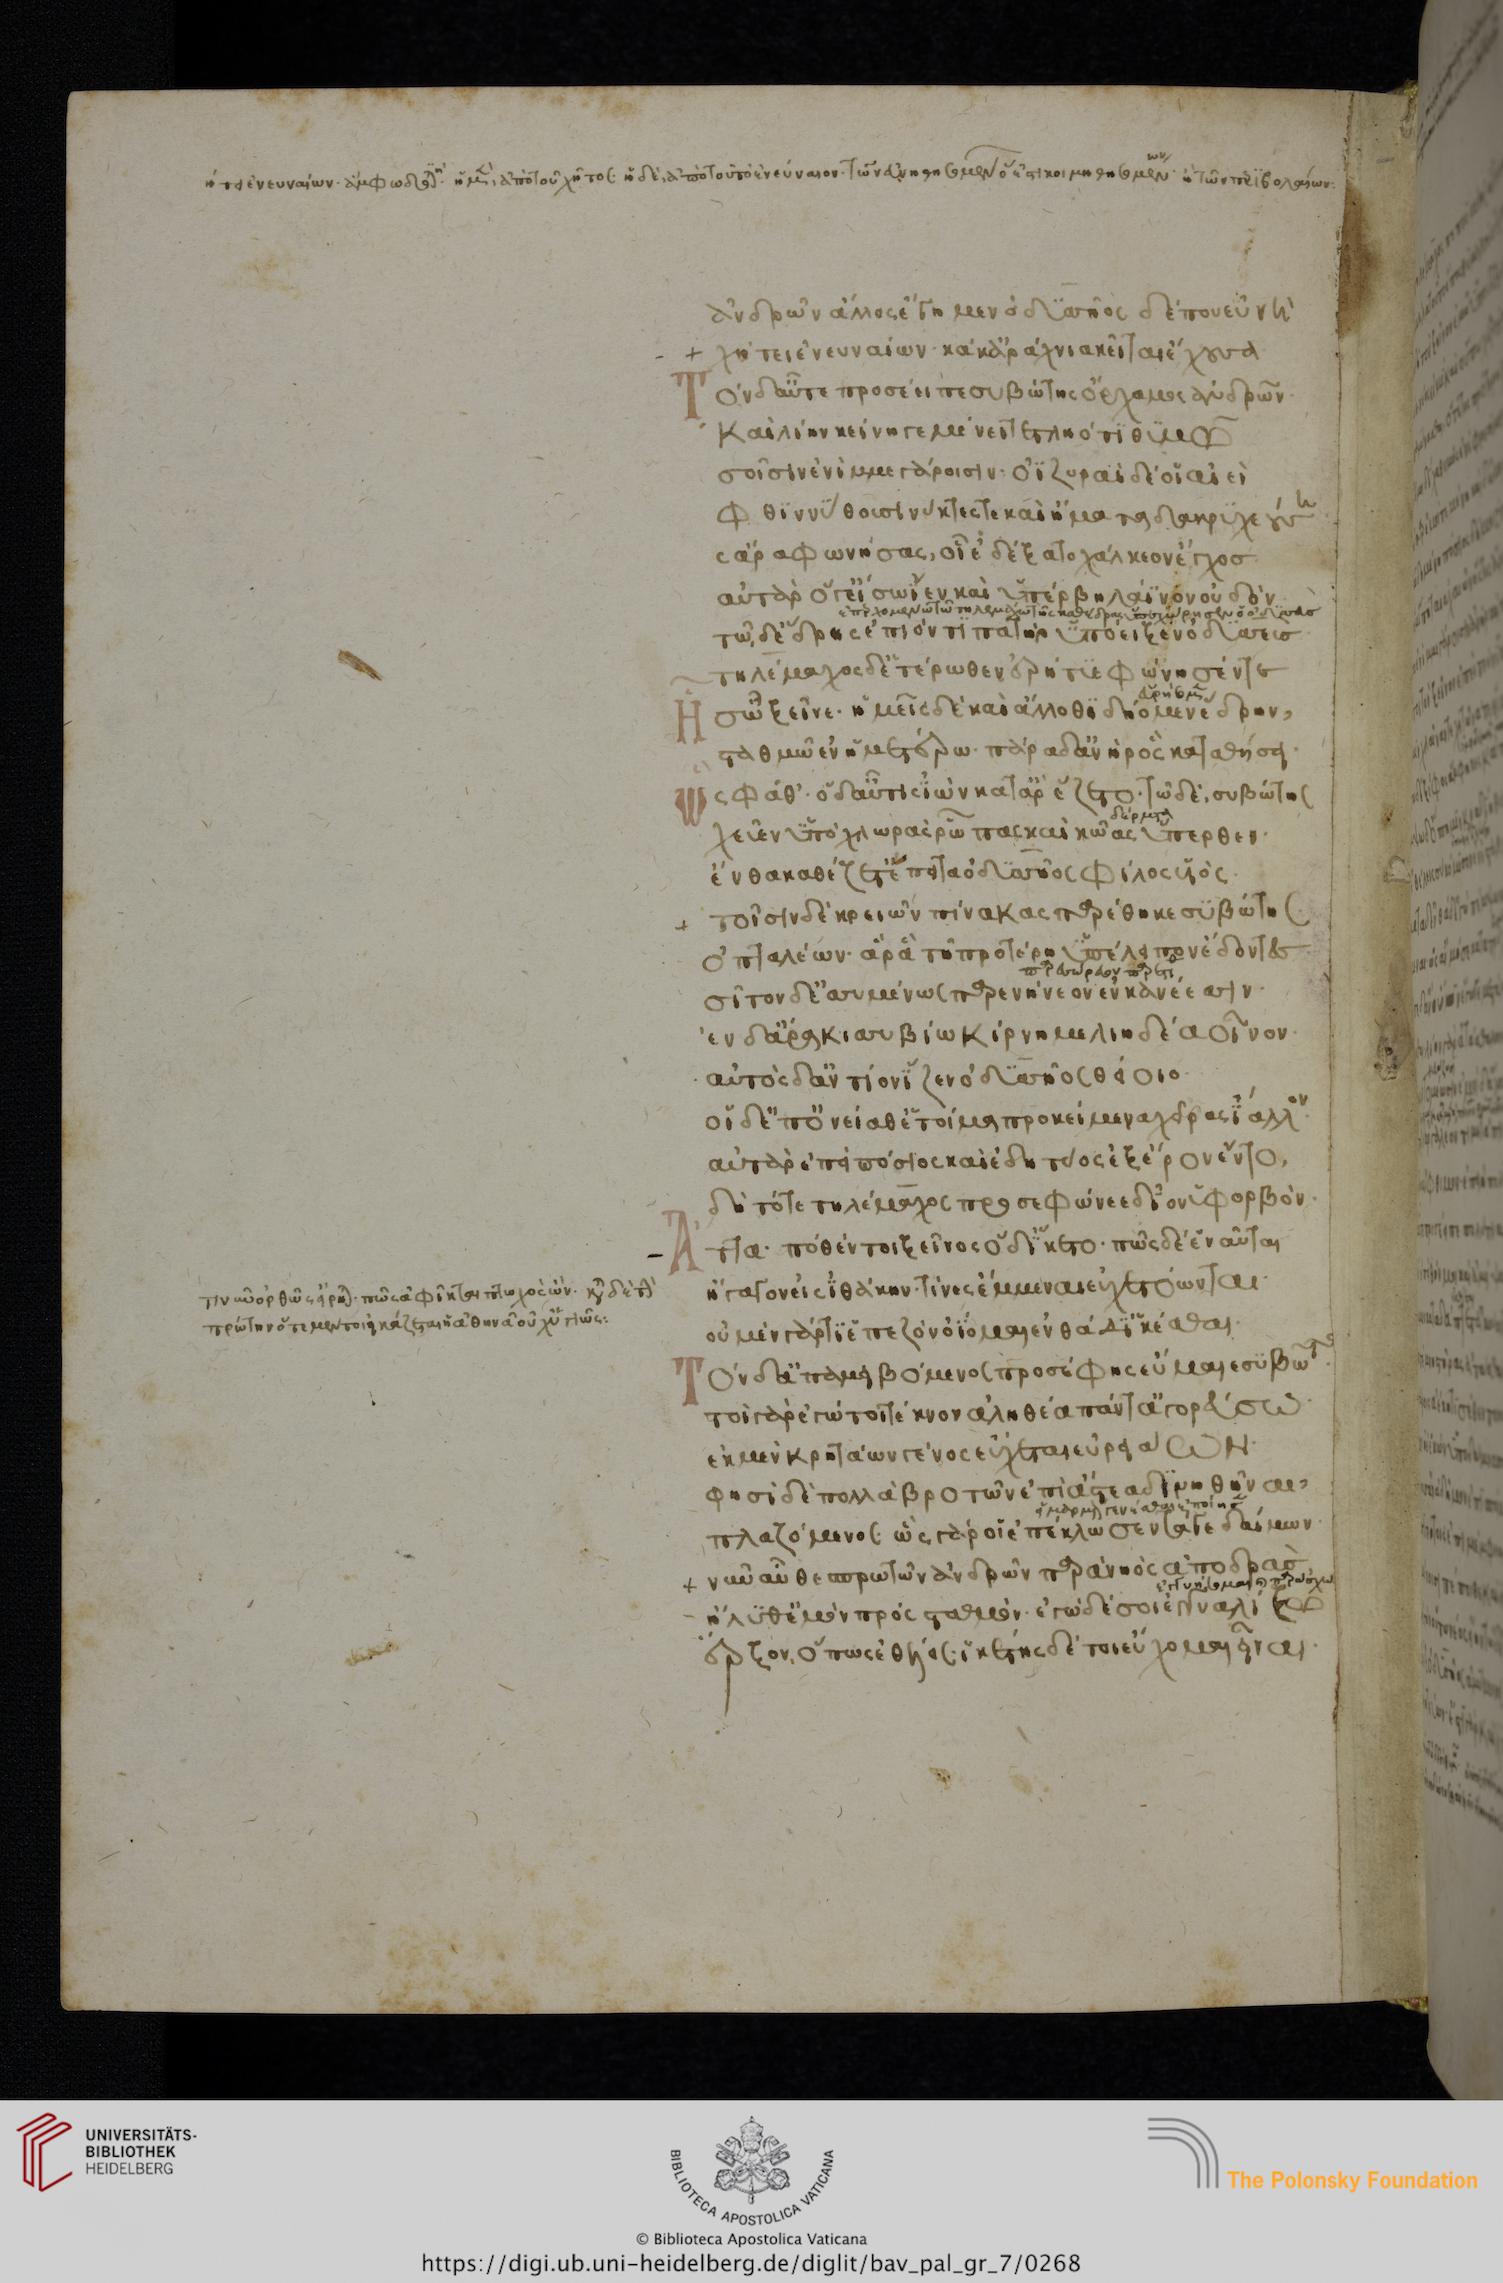 ἀνδρῶν ἄλλος ἔγημεν ὀδυσσῆος δέ που εὐνὴ
χήτει ἐνευναίων· κάκ᾽ ἀράχνια κεῖται ἔχουσα·
Τὸν δ᾽ αὖτε προσέειπε συβώτης ὄρχαμος ἀνδρῶν·
Καὶ λίην κείνη γε μένει τετληότι θυμῶ
σοῖσιν ἐνὶ μμεγάροισιν· ὀϊζυραὶ δέ οἱ αἰεὶ
Φθίνουσιν νύκτες τε καὶ ἤματα δακρυχεούση
ς ἄρα φωνήσας, οἱ ἐδέξατο χάλκεον ἔγχος
αὐτὰρ ὅ γ᾽ εἴσω ἴεν καὶ ὑπέρβη λάϊνον οὐδόν
τῶ δ᾽ ἕδρης ἐπιόντι πατὴρ ὑπόειξεν ὀδυσσεύς
τηλέμαχος δ᾽ ἑτέρωθεν ἐρήτυε φώνησέν τε
Ἧσ᾽ ὦ ξεῖνε· ἡμεῖς δὲ καὶ ἄλλοθι δήομεν ἕδρην,
σταθμῶ ἐν ἡμετέρω· πάρα δ᾽ ἀνὴρ ὃς καταθήσει·
Ὣς φάθ᾽· ὁ δ᾽ αὖτις ἰὼν κατ᾽ ἄρ᾽ ἕζετο· τῶ δὲ, συβώτης
δέρμα
χεῦεν ὕπο χλωρὰς ῥῶπας καὶ κῶας ὕπερθεν·
ἔνθα καθέζετ᾽ ἔπειτα ὀδυσσῆος φίλος υἱός·
τοῖσιν δὲ κρειῶν πίνακας παρέθηκε συβώτης
ὀπταλέων· ἅρα τῆ προτέρη ὑπέλειπον ἔδοντες
σῖτον δ᾽ ἐσσυμένως παρενήνεον ἐν κανέεσσιν·
ἐν δ᾽ ἄρα κισσυβίω κίρνη μελιηδέα οἶνον·
αὐτὸς δ᾽ ἀντίον ἷζεν ὀδυσσῆος θείοιο·
οἱ δ᾽ ἐπ᾽ ὀνείαθ᾽ ἑτοῖμα προκείμενα χεῖρας ἴαλλον·
αὐτὰρ ἐπεὶ πόσιος καὶ ἐδητύος ἐξ ἔρον ἕντο,
δὴ τότε τηλέμαχος προσεφώνεε δῖον ὑφορβόν·
Ἄττα· πόθεν τοι ξεῖνος ὅδ᾽ ἵκετο· πῶς δέ ἑ ναῦται
ἤγαγον εἰς ἰθάκην· τίνες ἔμμεναι εὐχετόωντο·
τὴν μὲν ὀρθῶς εἴρηται· πῶς ἀφῖκται πτωχὸς ὤν·
οὐ μὲν γάρ τί ἑ πεζὸν ὀΐομαι ἐνθάδ᾽ ἱκέσθαι·
Τὸν δ᾽ ἀπαμειβόμενος προσέφης εὔμαιε συβῶτα·
τοὶ γὰρ ἐγώ τοι τέκνον ἀληθέα πάντ᾽ ἀγορεύσω·
ἐκ μὲν κρητάων γένος εὔχεται εὐρειάων·
φησὶ δὲ πολλὰ βροτῶν ἐπὶ ἄστεα δινηθῆναι,
πλαζόμενος ὣς, γάρ οἱ ἐπέκλωσεν τά γε δαίμων·
νῦν αὖ θεσπρωτῶν ἀνδρῶν παρὰ νηὸς ἀποδρὰς
ἤλυθ᾽ ἐμὸν πρὸς σταθμόν· ἐγὼ δέ σοι ἐγγυαλίξω
ἔρξον, ὅπως ἐθέλεις· ἱκέτης δέ τοι εὔχομαι εἶναι·
UNIVERSITÄTS-
BIBLIOTHEK
HEIDELBERG
BIBLIOTECA APOSTOLICA VATICANA
The Polonsky Foundation
© Biblioteca Apostolica Vaticana
https://digi.ub.uni-heidelberg.de/diglit/bav_pal_gr_7/0268